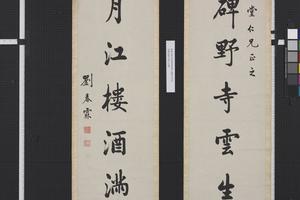 碑野寺雲生
堂仁兄正之
月江樓酒滿
劉春霖